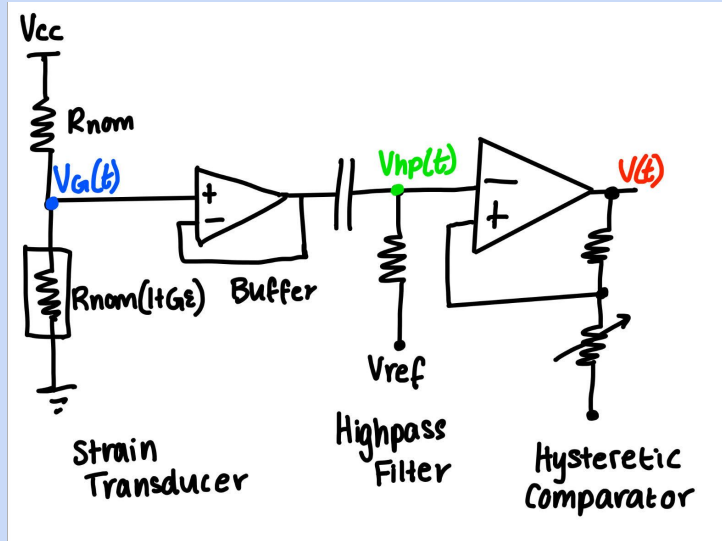 Vcc
Rnom
VG(t)
Rnom(1+Gε)
+
-
Buffer
Vhp(t)
Vref
-
+
V(t)
Strain
Transducer
Highpass
Filter
Hysteretic
Comparator